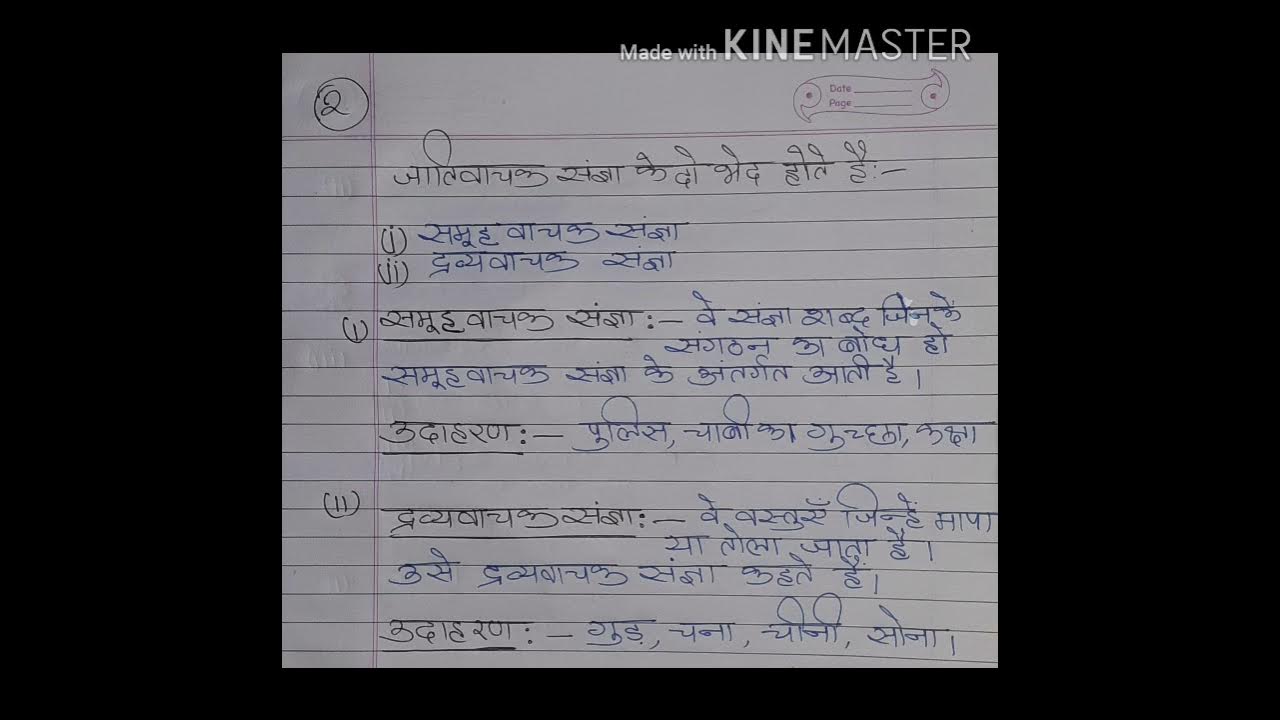 Made with KINEMASTER
Date
Page
२
जातिवाचक संज्ञा के दो भेद होते हैं:-
(i) समूहवाचक संज्ञा
(ii) द्रव्यवाचक संज्ञा
(I) समूहवाचक संज्ञा :- वे संज्ञा शब्द जिनके
संगठन का बोध हो
समूहवाचक संज्ञा के अंतर्गत आती है।
उदाहरण :- पुलिस, चाबी का गुच्छा, कक्षा
(II) द्रव्यवाचक संज्ञा :- वे वस्तुएँ जिन्हें मापा
या तोला जाता है।
उसे द्रव्यवाचक संज्ञा कहते हैं।
उदाहरण :- गुड़, चना, चीनी, सोना।